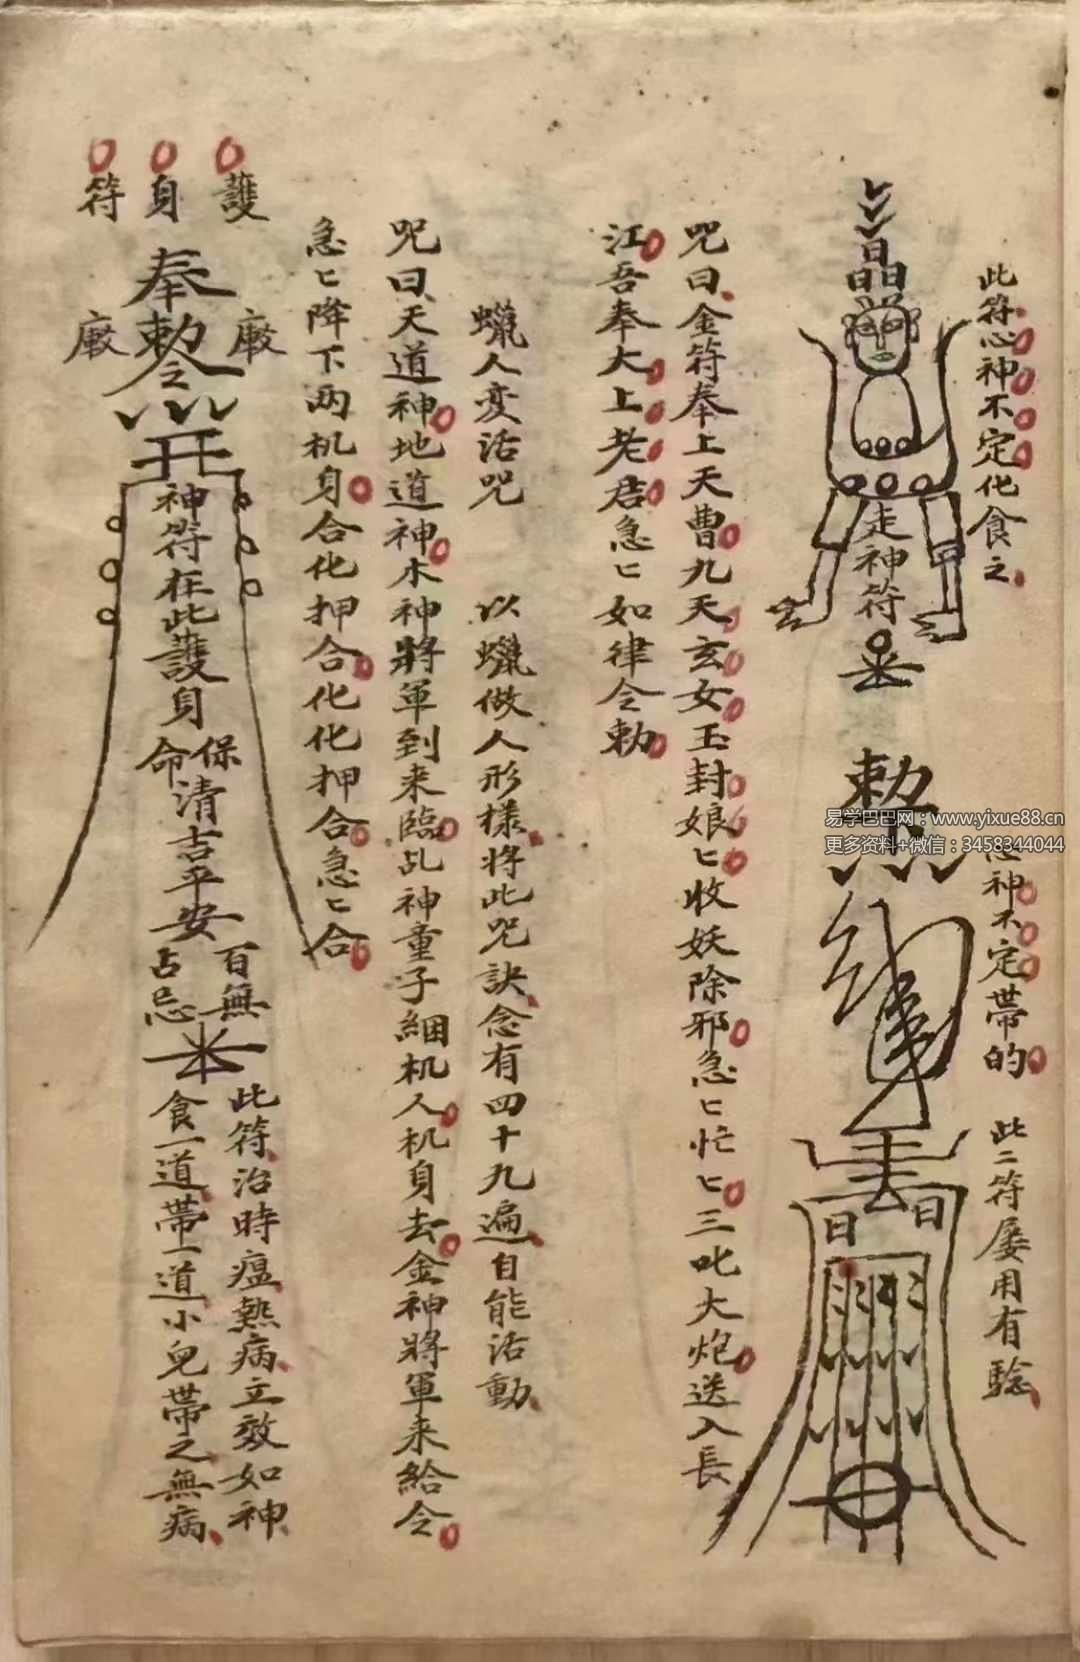 此符心神不定化食之
晶
走神符
勅
下
心神不定帶的
此二符屡用有驗
日 日
咒曰金符奉上天曹九天玄女玉封娘匕收妖除邪急匕忙匕三叱大炮送入長
江吾奉大上老君急匕如律令勅
蠟人变活咒
以蠟做人形樣将此咒訣念有四十九遍自能活動
咒曰天道神地道神木神將軍到来臨乩神童子綑机人机身去金神將軍来給令
急匕降下两机身合化押合化化押合急匕合
護身符
奉勅令
神符在此護身
保命
清吉平安
百無
占忌
此符治時瘟熱病立效如神
食一道帶一道小兒帶之無病
易学巴巴网：www.yixue88.cn
更多资料+微信：3458344044